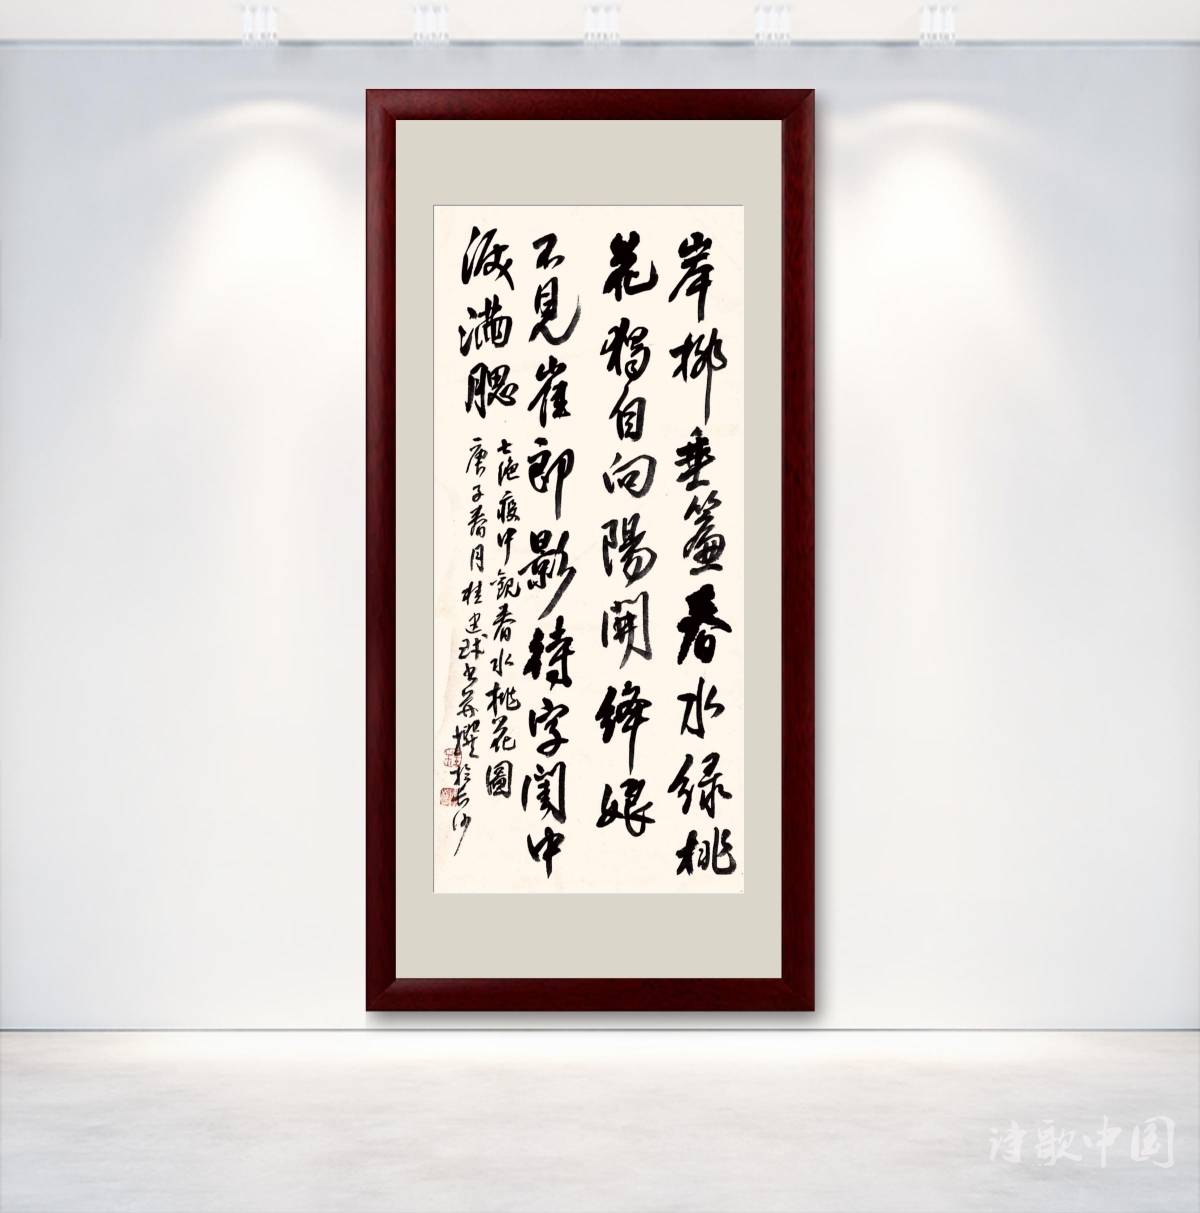 岸柳垂簾春水緑桃
花獨自向陽開絳娘
不見崔郎影待字闺中
淚满腮
七绝疫中觀春水桃花圖
庚子春月桂建球書并撰於长沙
诗歌中国